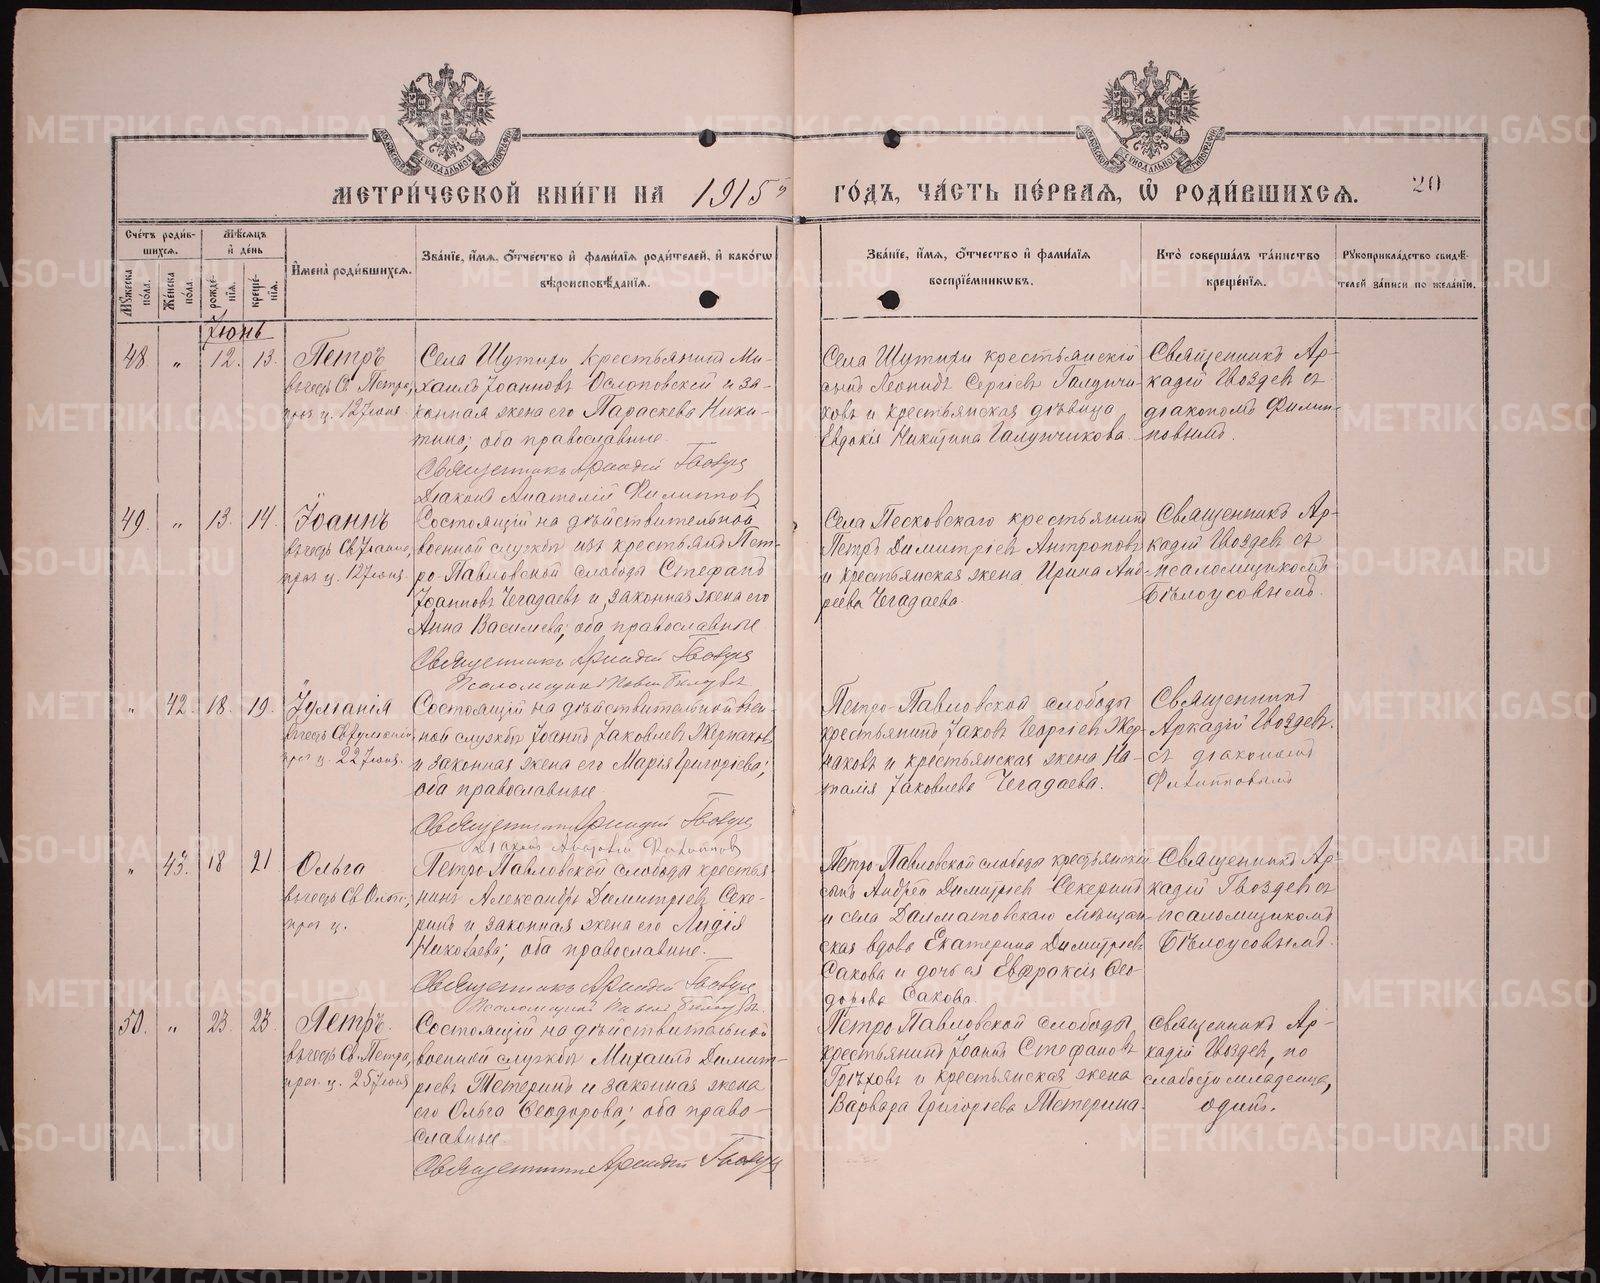 МЕТРИ́ЧЕСКОЙ КНИ́ГИ НА 1915й ГО́ДЪ, ЧА́СТЬ ПЕ́РВАѦ, Ѽ РОДИ́ВШИХСѦ.
20
Сче́тъ роди́в-
шихсѧ.
Мѹ́жеска по́ла.
Же́нска по́ла.
Мѣ́сѧцъ и҆ де́нь
рожде́-
нїѧ.
креще́-
нїѧ.
И҆мена̀ роди́вшихсѧ.
Зва́нїе, и҆́мѧ, ѻ҆́тчество и҆ фами́лїѧ роди́телей, и҆ како́гѡ
вѣроисповѣ́данїѧ.
Зва́нїе, и҆́мѧ, ѻ҆́тчество и҆ фами́лїѧ
воспрїе́мникѡвъ.
Кто̀ соверша́лъ та́инство
креще́нїѧ.
Рѹкоприкла́дство свидѣ́-
телей за́писи по жела́нїю.
Іюнь
48 „ 12. 13. Петръ
въ честь Св. Петра,
праз. ц. 12 Іюня
Села Шутихи крестьянинъ Ми-
хаилъ Іоанновъ Ослоповскій и за-
конная жена его Параскева Ники-
тина; оба православные.
Священникъ Аркадій Гвоздев
Діаконъ Анатолій Филиппов
Села Шутихи крестьянскій
сынъ Леонидъ Сергіевъ Галунчи-
ковъ и крестьянская дѣвица
Евдокія Никитина Галунчикова.
Священникъ Ар-
кадій Гвоздевъ съ
діакономъ Филип-
повымъ.
49. „ 13. 14. Іоаннъ
въ честь Св. Іоанна,
праз. ц. 12 Іюня
Состоящій на дѣйствительной
военной службѣ изъ крестьянъ Пет-
ро-Павловской слободы Стефанъ
Іоанновъ Чегадаевъ и законная жена его
Анна Васильева; оба православные
Священникъ Аркадій Гвоздев
Псаломщикъ Павел Бѣлоусов
Села Песковскаго крестьянинъ
Петръ Димитріевъ Антроповъ
и крестьянская жена Ирина Анд-
реева Чегадаева.
Священникъ Ар-
кадій Гвоздевъ съ
псаломщикомъ
Бѣлоусовымъ.
„ 42. 18. 19. Іуліанія
въ честь Св. Іуліаніи
праз. ц. 22 Іюня.
Состоящій на дѣйствительной воен-
ной службѣ Іоаннъ Іаковлевъ Жернаковъ
и законная жена его Марія Григоріева;
оба православные.
Священникъ Аркадій Гвоздев
Діаконъ Анатолій Филиппов
Петро-Павловской слободы
крестьянинъ Іаковъ Георгіевъ Жер-
наковъ и крестьянская жена На-
талія Іаковлева Чегадаева.
Священникъ
Аркадій Гвоздевъ
съ діакономъ
Филипповымъ
„ 43. 18 21 Ольга
въ честь Св. Ольги,
праз. ц.
Петро-Павловской слободы крестья-
нинъ Александръ Димитріевъ Секе-
ринъ и законная жена его Лидія
Николаева; оба православные.
Священникъ Аркадій Гвоздев
Псаломщикъ Павел Бѣлоусов
Петро-Павловской слободы крестьянскій
сынъ Андрей Димитріевъ Секеринъ
и села Далматовскаго мѣщан-
ская вдова Екатерина Димитріева
Сакова и дочь ея Евфраксія Ѳео-
дорова Сакова.
Священникъ Ар-
кадій Гвоздевъ съ
псаломщикомъ
Бѣлоусовымъ.
50. „ 23. 23. Петръ.
въ честь Св. Петра,
праз. ц. 25 Іюня
Состоящій на дѣйствительной
военной службѣ Михаилъ Димит-
ріевъ Тетеринъ и законная жена
его Ольга Ѳеодорова; оба право-
славные.
Священникъ Аркадій Гвоздев
Петро-Павловской слободы
крестьянинъ Іоаннъ Стефановъ
Грѣховъ и крестьянская жена
Варвара Григоріева Тетерина.
Священникъ Ар-
кадій Гвоздевъ, по
слабости младенца,
одинъ.
METRIKI.GASO-URAL.RU